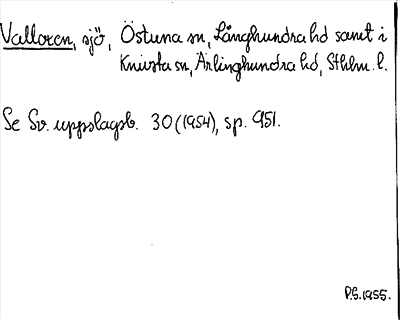 Valloxen, sjö, Östuna sn, Långhundra hd samt i
Knivsta sn, Ärlinghundra hd, Sthlm. l.
Se Sv. uppslagsb. 30 (1954), sp. 951.
P.G. 1955.